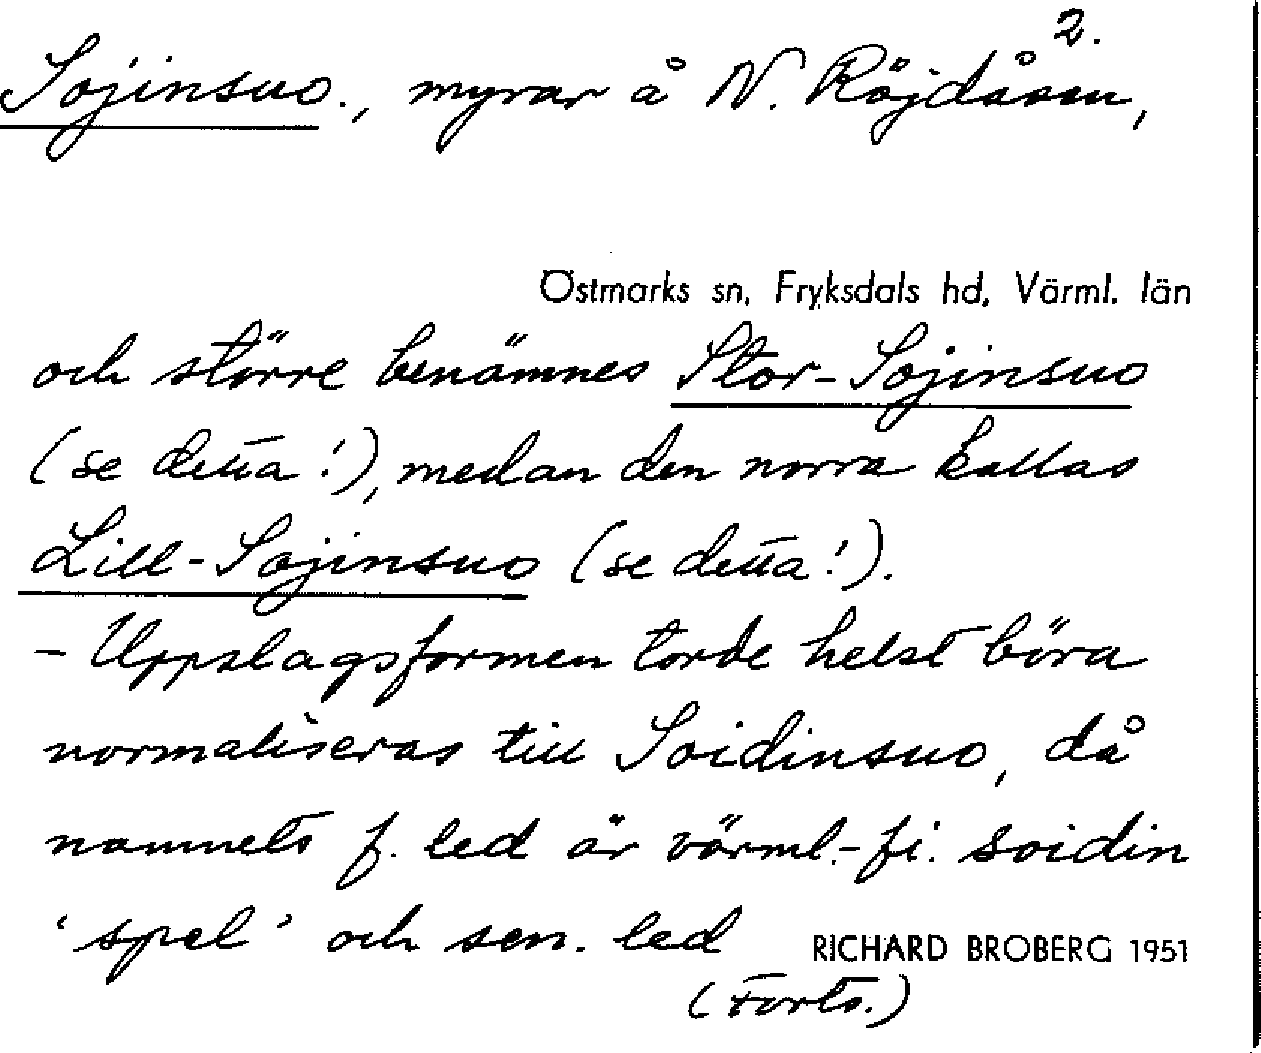 2.
Sojinsuo., myrar å N. Röjdåsen,
Östmarks sn, Fryksdals hd, Värml. län
och större benämnes Stor-Sojinsuo
(se detta!), medan den norra kallas
Lill-Sojinsuo (se detta!).
- Uppslagsformen torde helst böra
normaliseras till Soidinsuo, då
namnets f. led är värml.-fi. soidin
'spel' och sen. led
RICHARD BROBERG 1951
(Forts.)